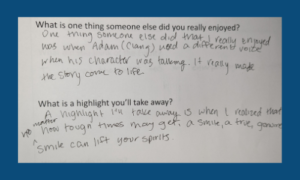 What is one thing someone else did you really enjoyed?
One thing someone else did that I really enjoyed
was when Adam (Clang) used a different voice
when his character was talking. It really made
the story come to life.
What is a highlight you'll take away?
A highlight I'll take away is when I realised that
no matter how tough times may get, a smile, a true genuine
smile can lift your spirits.